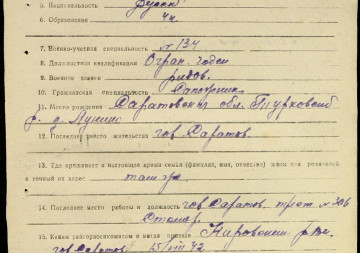 5. Национальность русский
6. Образование 4 кл.
7. Военно-учетная специальность № 134
8. Должностная квалификация Огран. годен
9. Военное звание рядов.
10. Гражданская специальность Сапожник
11. Место рождения Саратовская обл. Турковский
р. д.
12. Последнее место жительства гор Саратов
13. Где проживает в настоящее время семья (фамилия, имя, отчество) жены или родителей
и точный их адрес там же
14. Последнее место работы и должность гор Саратов. трест № 206
Столяр.
15. Каким райгорвоенкоматом и когда призван Кировским рвк
гор Саратов 15/VIII 42